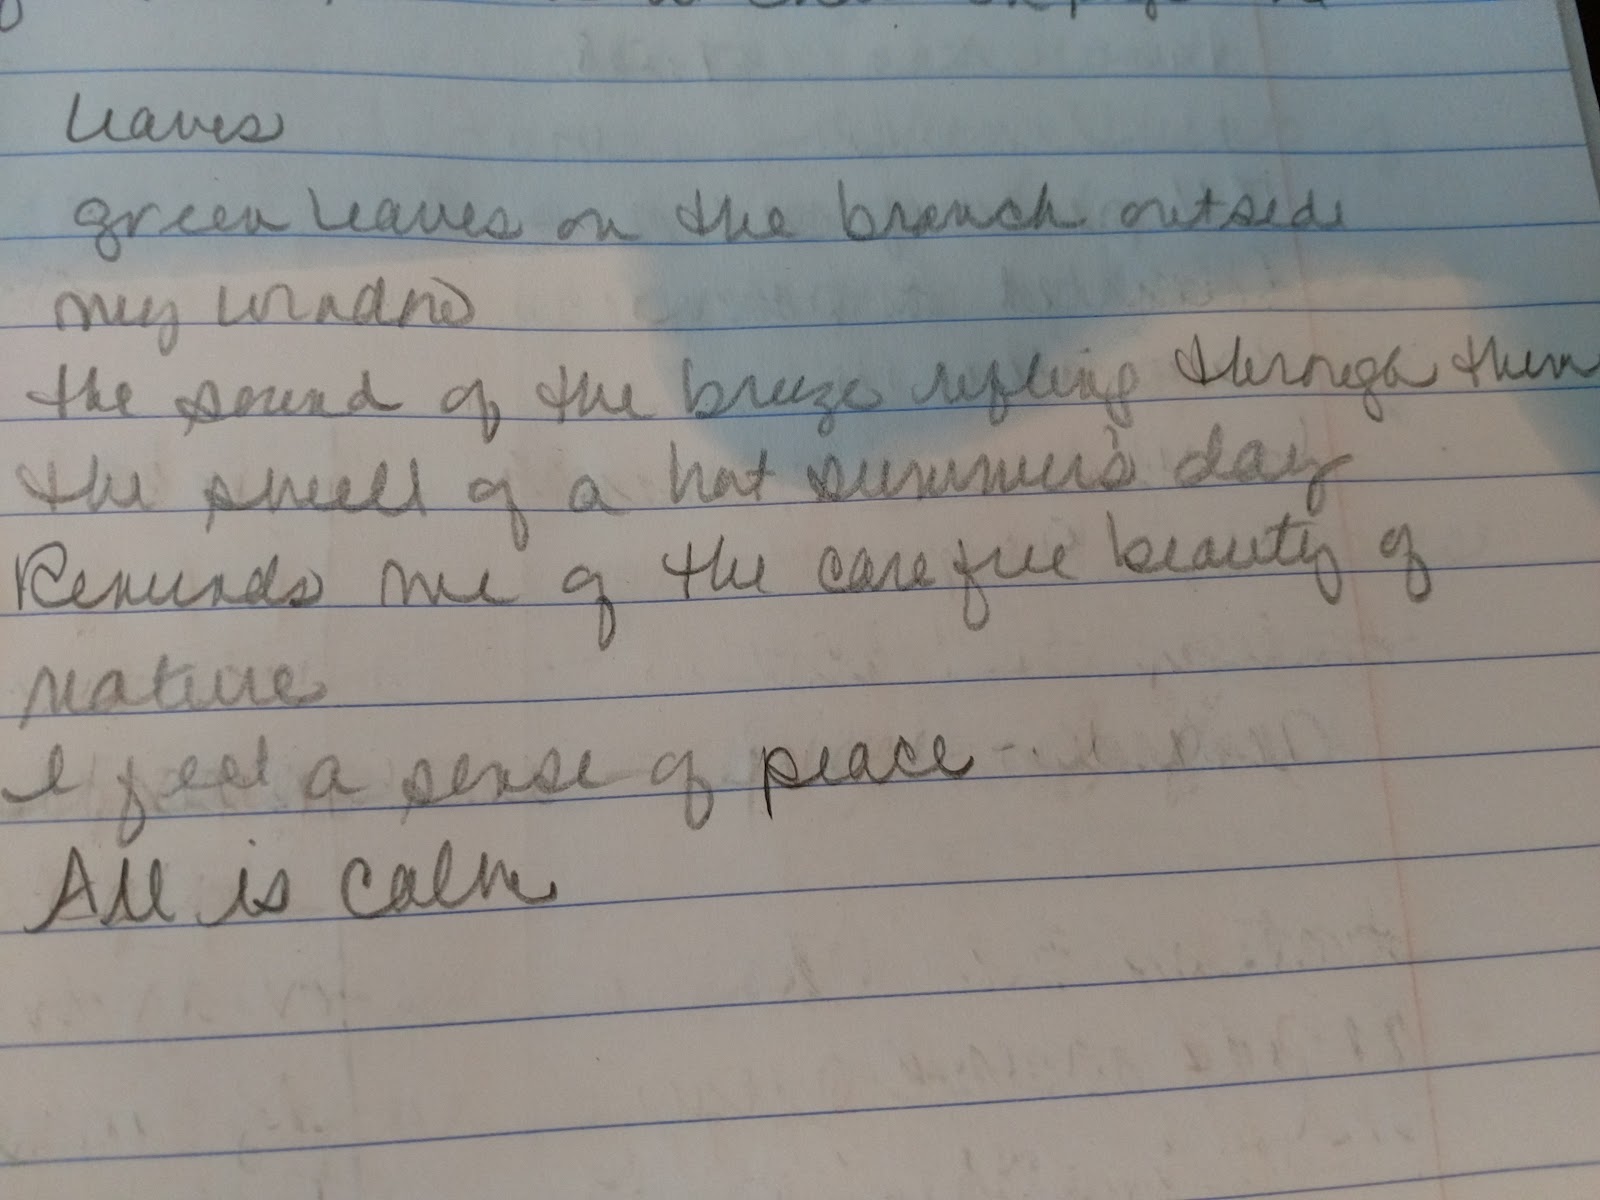 Leaves
green leaves on the branch outside
my window
the sound of the breeze rufling through them
the smell of a hot summer's day
Reminds me of the care free beauty of
nature
I feel a sense of peace
All is calm